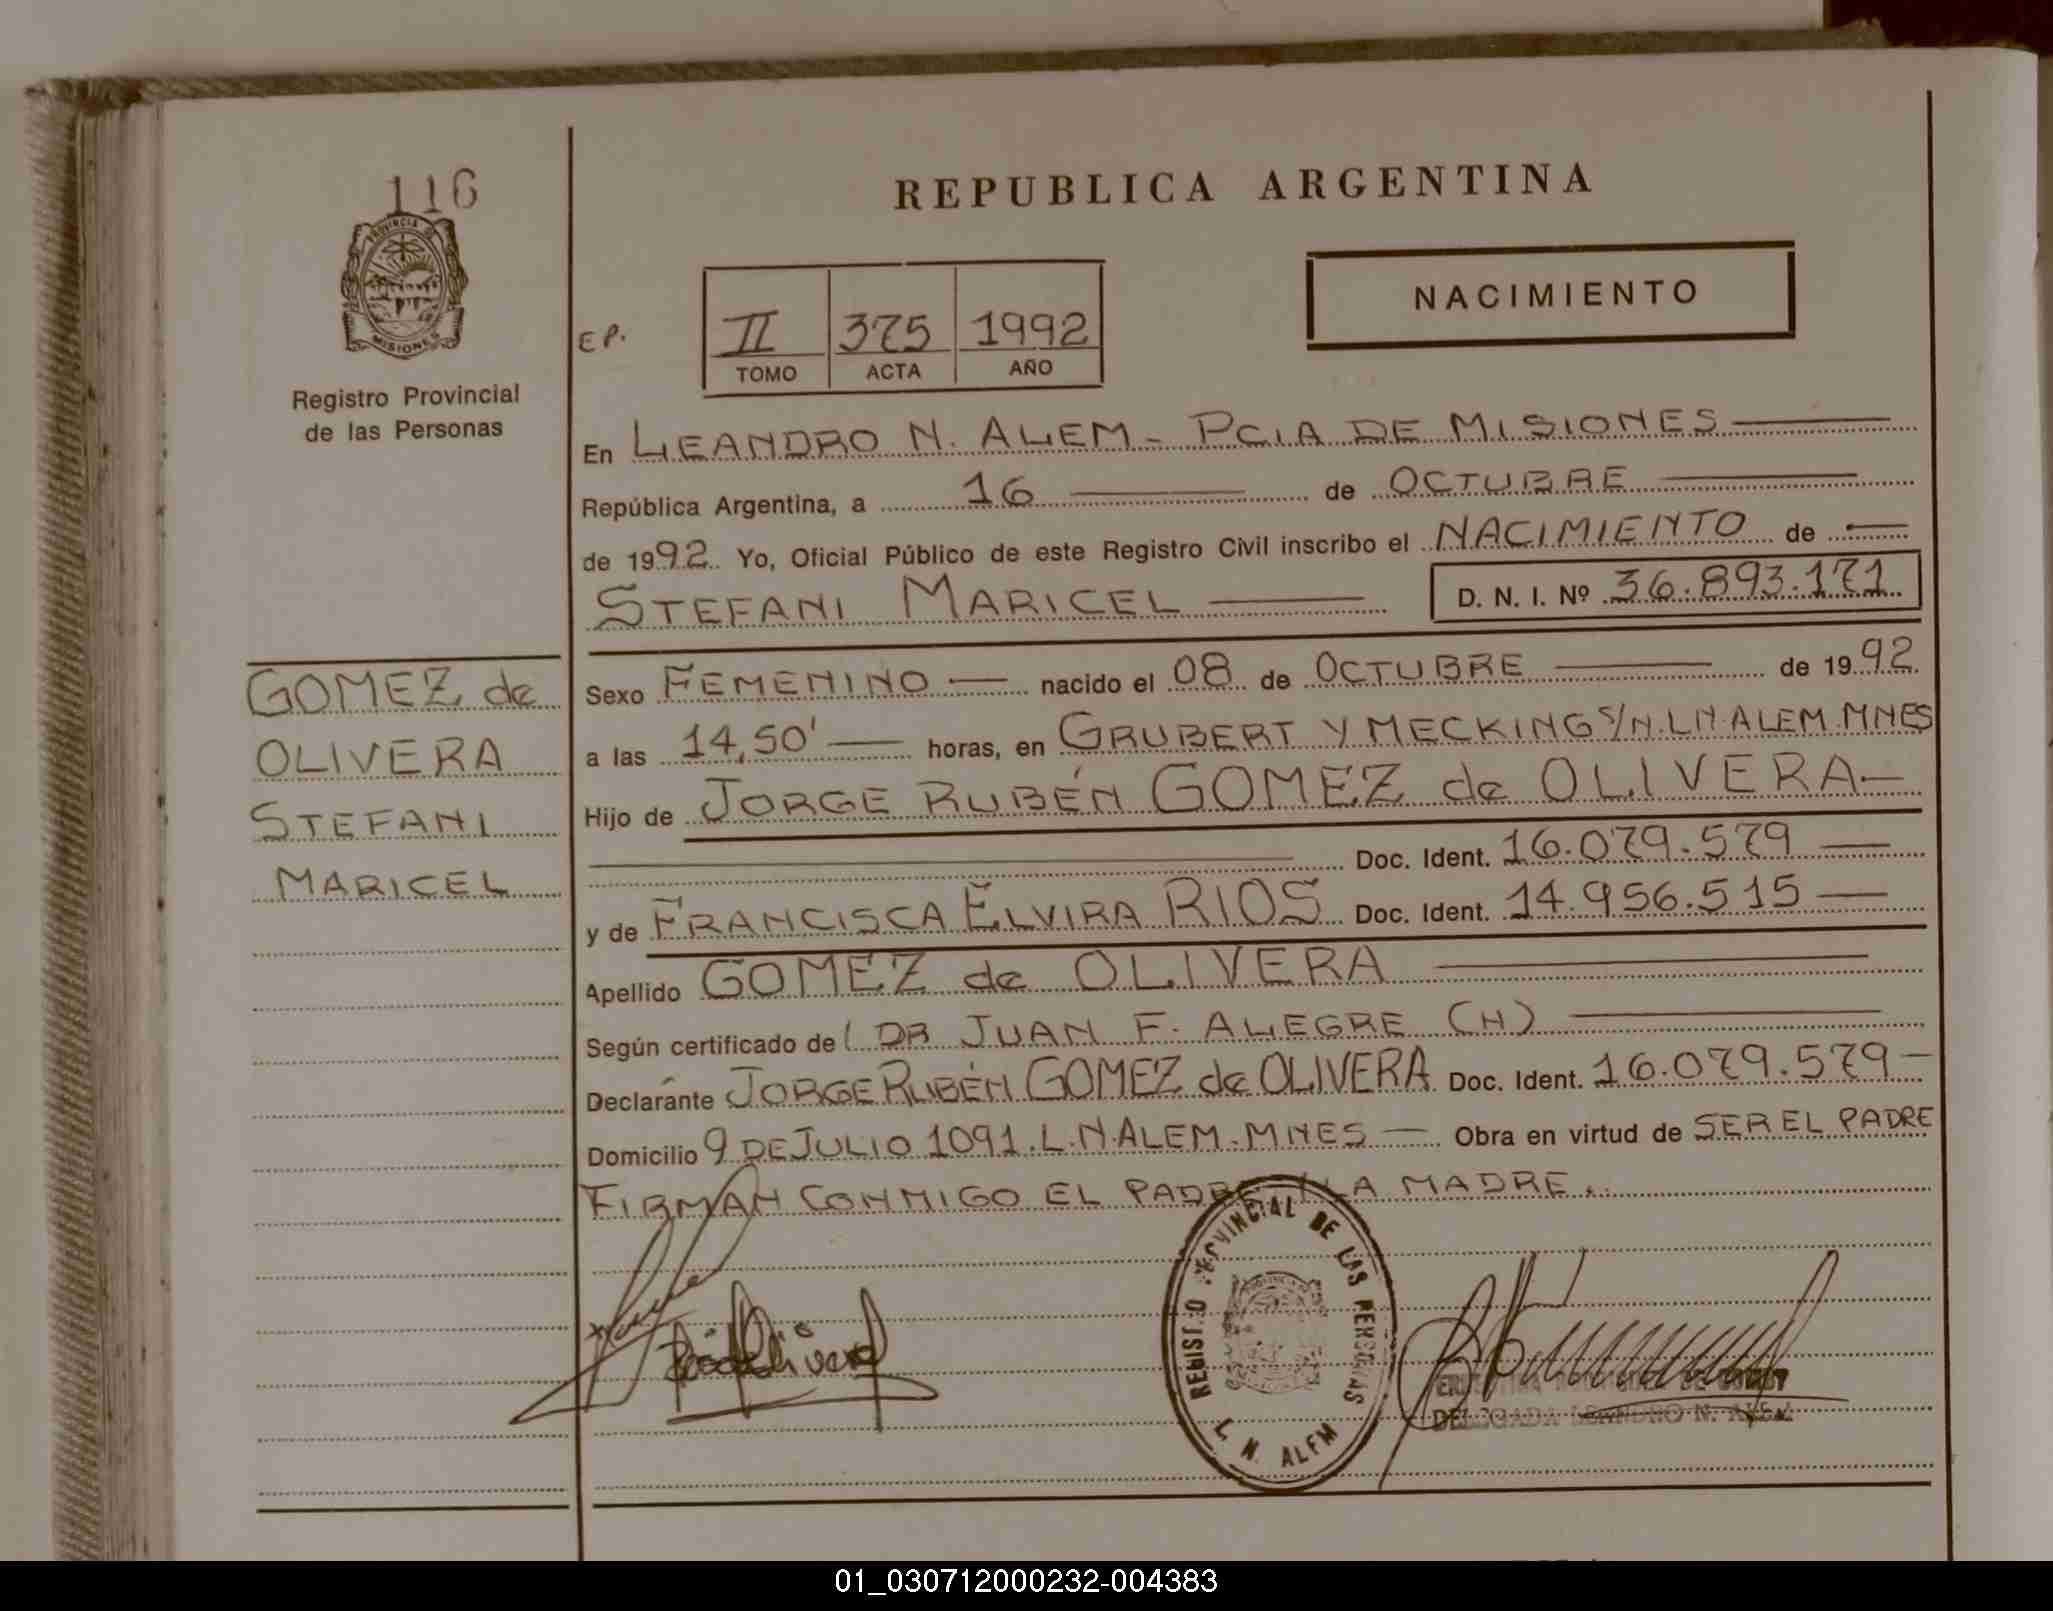 116
PROVINCIA DE
MISIONES
Registro Provincial
de las Personas
GOMEZ de
OLIVERA
STEFANI
MARICEL
REPUBLICA ARGENTINA
NACIMIENTO
EP.
II 375 1992
TOMO ACTA AÑO
En LEANDRO N. ALEM - PCIA DE MISIONES
República Argentina, a 16 de OCTUBRE
de 1992 Yo, Oficial Público de este Registro Civil inscribo el NACIMIENTO de
STEFANI MARICEL D. N. I. Nº 36.893.171
Sexo FEMENINO nacido el 08 de OCTUBRE de 1992
a las 14,50' horas, en GRUBERT Y MECKING S/N. L.N.ALEM. MNES
Hijo de JORGE RUBÉN GOMEZ de OLIVERA
Doc. Ident. 16.079.579
y de FRANCISCA ELVIRA RIOS Doc. Ident. 14.956.515
Apellido GOMEZ de OLIVERA
Según certificado de DR JUAN F. ALEGRE (H)
Declarante JORGE RUBÉN GOMEZ de OLIVERA Doc. Ident. 16.079.579
Domicilio 9 DE JULIO 1091. L.N.ALEM. MNES Obra en virtud de SER EL PADRE
FIRMAN CONMIGO EL PADRE Y LA MADRE.
REGISTRO PROVINCIAL DE LAS PERSONAS
L. N. ALEM
DELEGADA LEANDRO N. ALEM
01_030712000232-004383